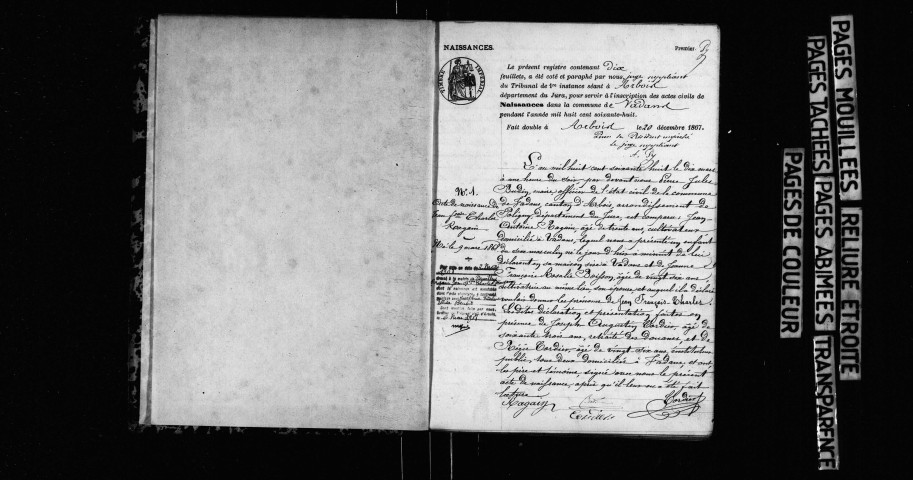 NAISSANCES.
Premier
TIMBRE IMPÉRIAL
Le présent registre contenant Dix
feuillets, a été coté et paraphé par nous, juge suppléant
du Tribunal de 1re instance séant à Arbois
département du Jura, pour servir à l'inscription des actes civils de
Naissances dans la commune de Vadans
pendant l'année mil huit cent soixante-huit.
Fait double à Arbois le 20 décembre 1867.
Pour le Président empêché
le juge suppléant
L'an mil huit cent soixante huit le dix mars
à une heure du soir par devant nous Jules
Budin, maire officier de l'état civil de la commune
de Vadans, canton d'Arbois, arrondissement de
Poligny, département du Jura, est comparu: Jean
Antoine Ragain, âgé de trente ans, cultivateur
domicilié à Vadans, lequel nous a présenté un enfant
du sexe masculin né le jour d'hier à minuit de lui
déclarant en sa maison sise à Vadans et de Jeanne
Françoise Boisson, âgée de vingt six ans
cultivatrice au même lieu, son épouse, et auquel il a déclaré
vouloir donner les prénoms de Jean François Charles.
Lesdites déclaration et présentation faites en
présence de Joseph Augustin Cordier, âgé de
soixante trois ans, retraité des Douanes, et de
Régis Cordier, âgé de vingt six ans instituteur
public, tous deux domiciliés à Vadans, et ont
les père et témoins, signé avec nous le présent
acte de naissance, après qu'il leur en a été fait
lecture
Ragain
Cordier
Cordier
N° 1.
Acte de naissance de
Jean François Charles
Ragain
Né le 9 mars 1868
PAGES MOUILLEES RELIURE ETROITE
PAGES TACHEES PAGES ABIMEES TRANSPARENCE
PAGES DE COULEUR